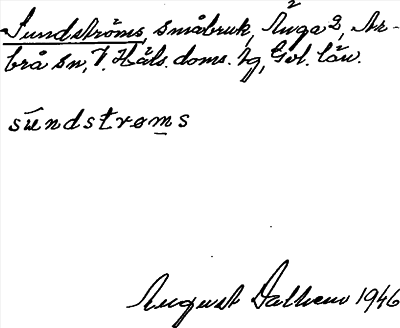 Sundströms, småbruk, Änga 2, Ar-
brå sn, V. Häls. doms. tg, Gvl. län.
súndstrøms
August Dalhem 1946